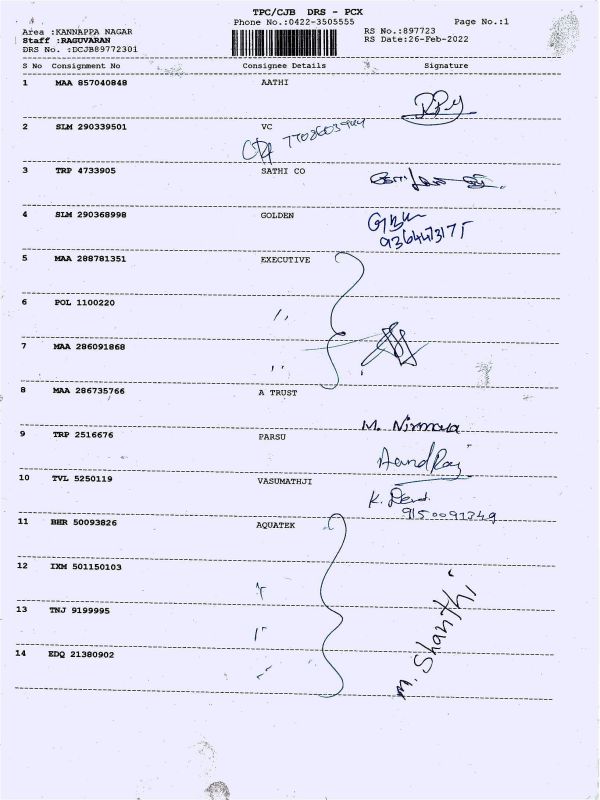 TPC/CJB DRS - PCX
Phone No.:0422-3505555 Page No.:1
Area :KANNAPPA NAGAR RS No.:897723
Staff :RAGUVARAN RS Date:26-Feb-2022
DRS No. :DCJB89772301
S No Consignment No Consignee Details Signature
1 MAA 857040848 AATHI
2 SLM 290339501 VC
3 TRP 4733905 SATHI CO
4 SLM 290368998 GOLDEN
9364473175
5 MAA 288781351 EXECUTIVE
6 POL 1100220 〃
7 MAA 286091868 〃
8 MAA 286735766 A TRUST
M. Nirmala
9 TRP 2516676 PARSU
Aand Raj
10 TVL 5250119 VASUMATHJI
K. Devi
9150091349
11 BHR 50093826 AQUATEK
12 IXM 501150103 〃
13 TNJ 9199995 〃
14 EDQ 21380902 〃
M. Shanthi